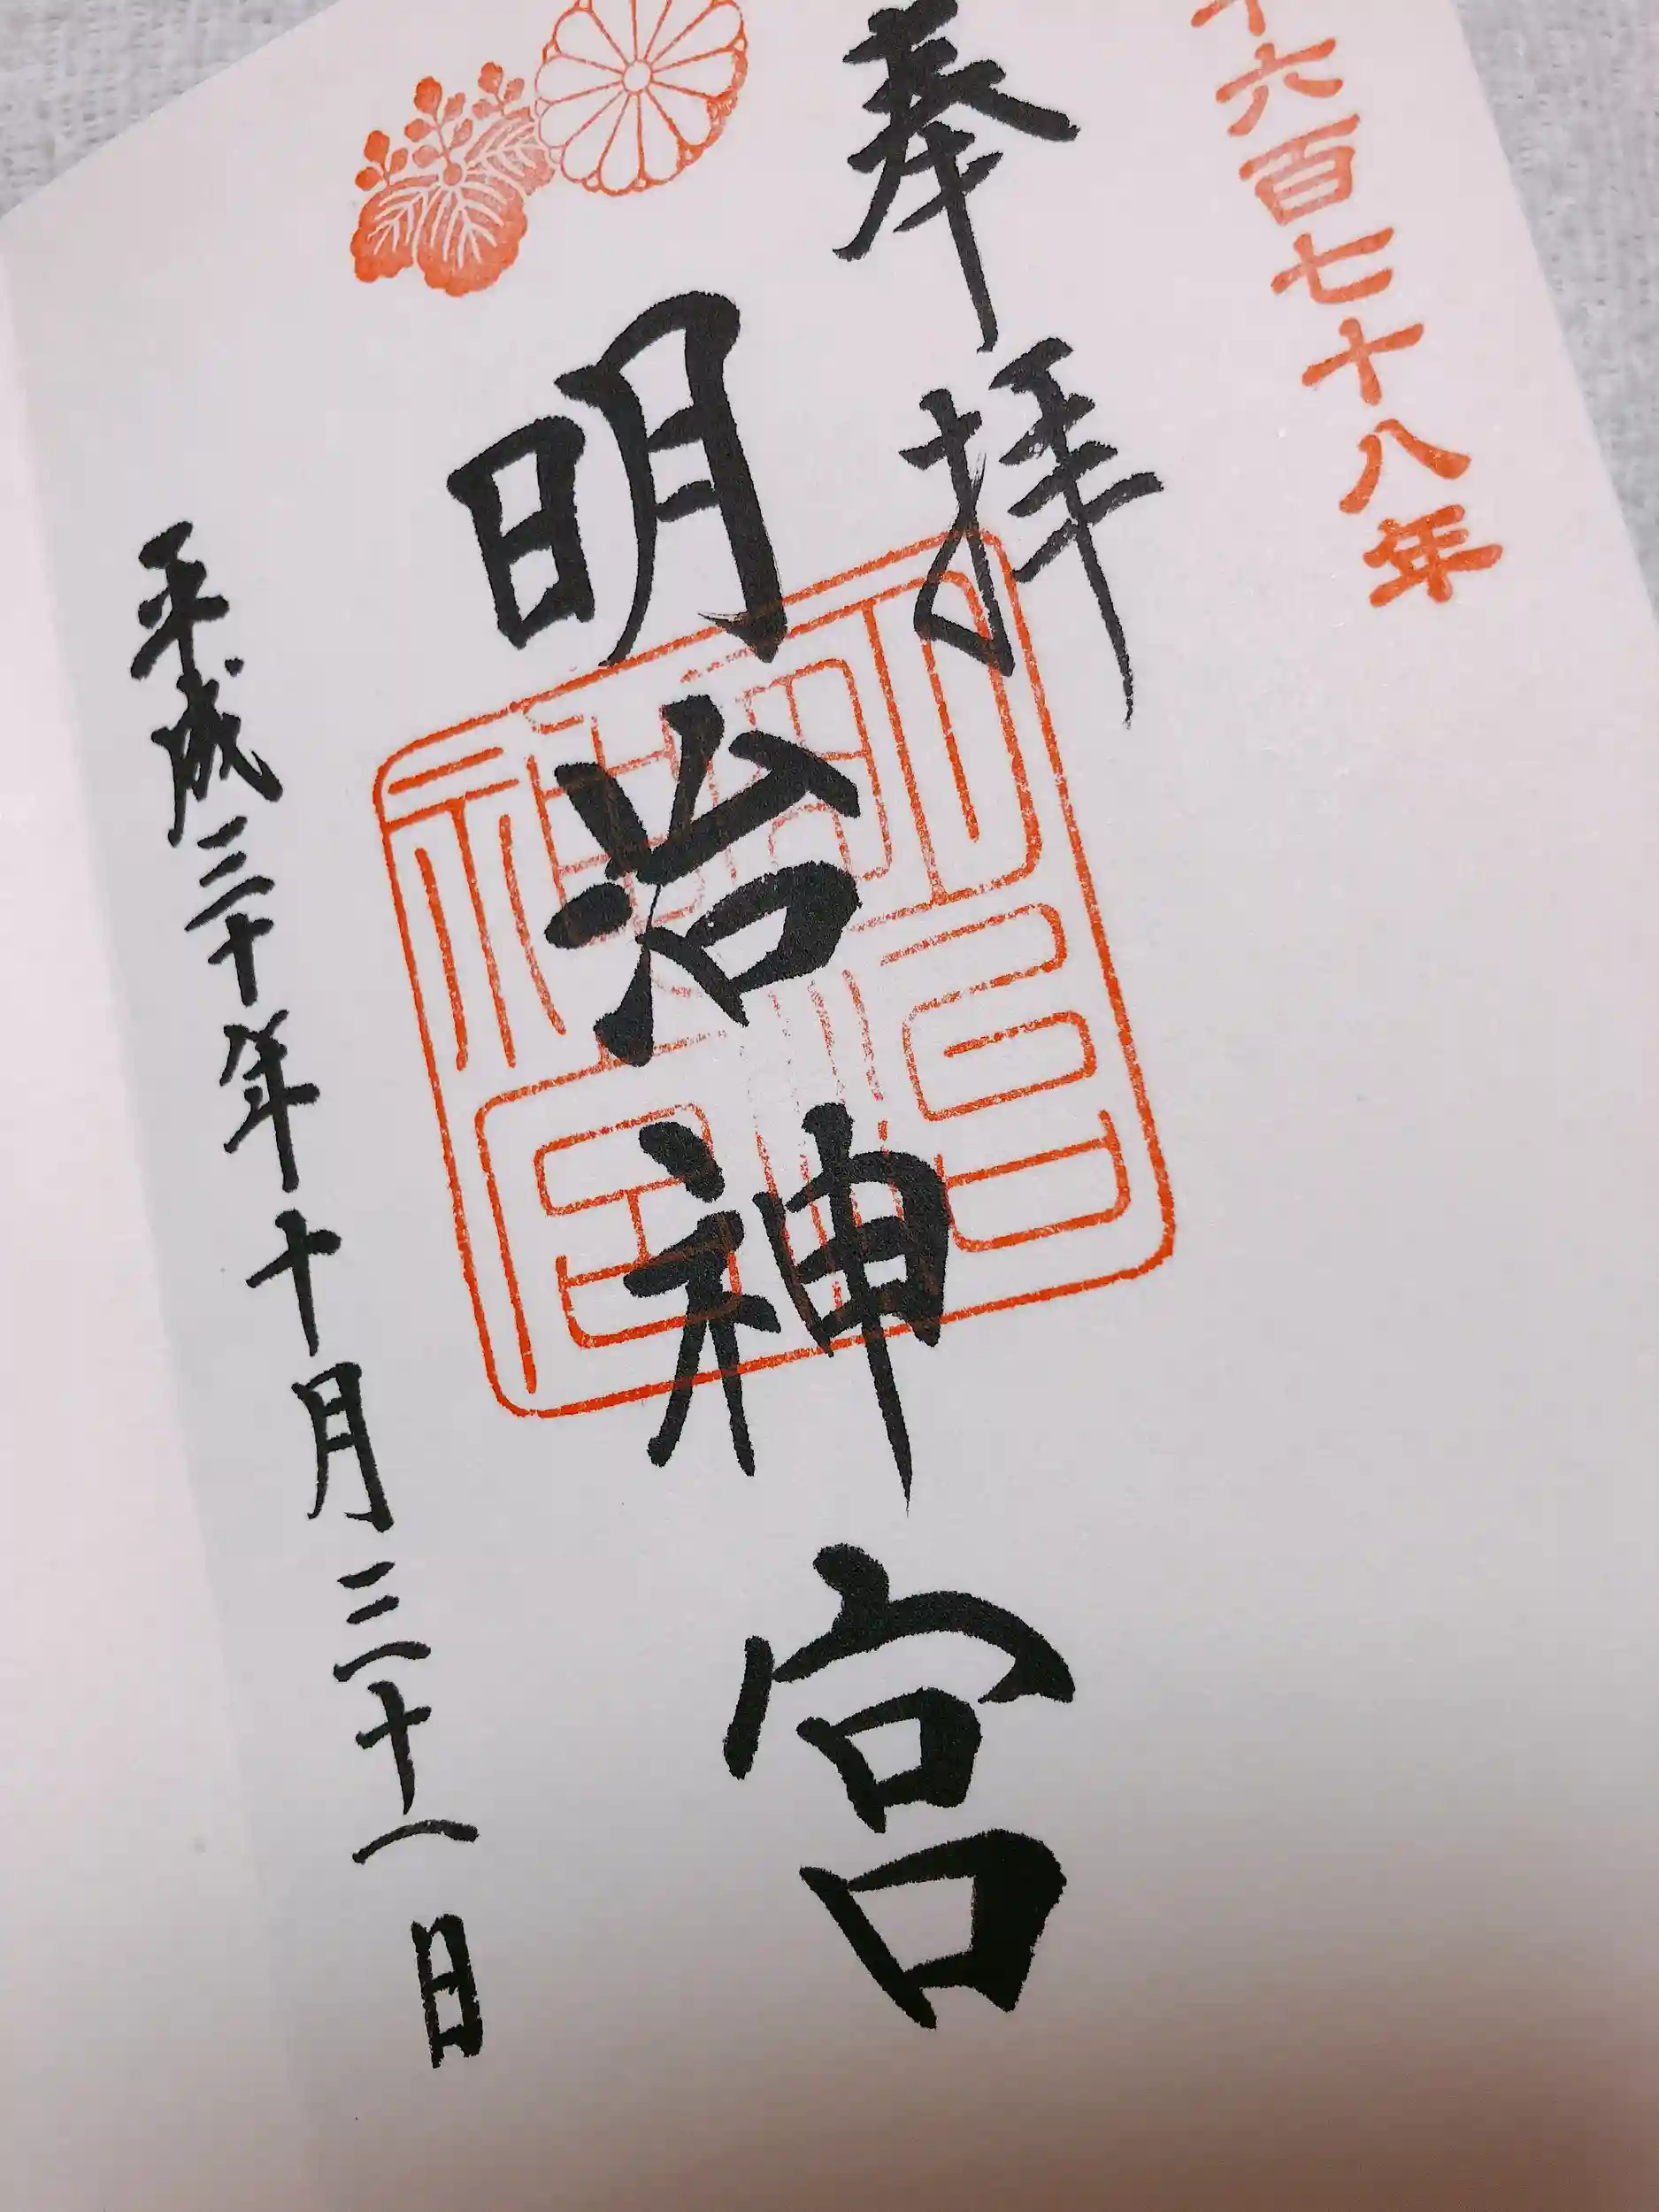 千六百七十八年
奉拝
明治神宮
明治神宮
平成三十年十月三十一日